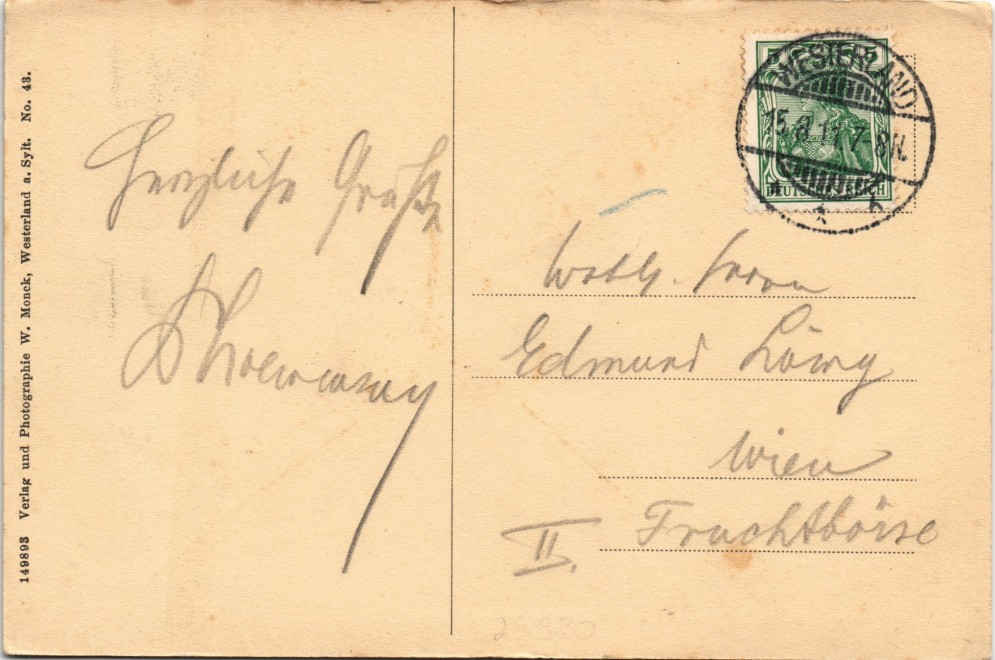 149893 Verlag und Photographie W. Monck, Westerland a. Sylt. No. 43.
Herzliche Grüße
WESTERLAND
15.8.11.7-8N.
* b
DEUTSCHES REICH
Wohlg. Herrn
Edmund Löwy
Wien
II. Fruchtbörse
25980